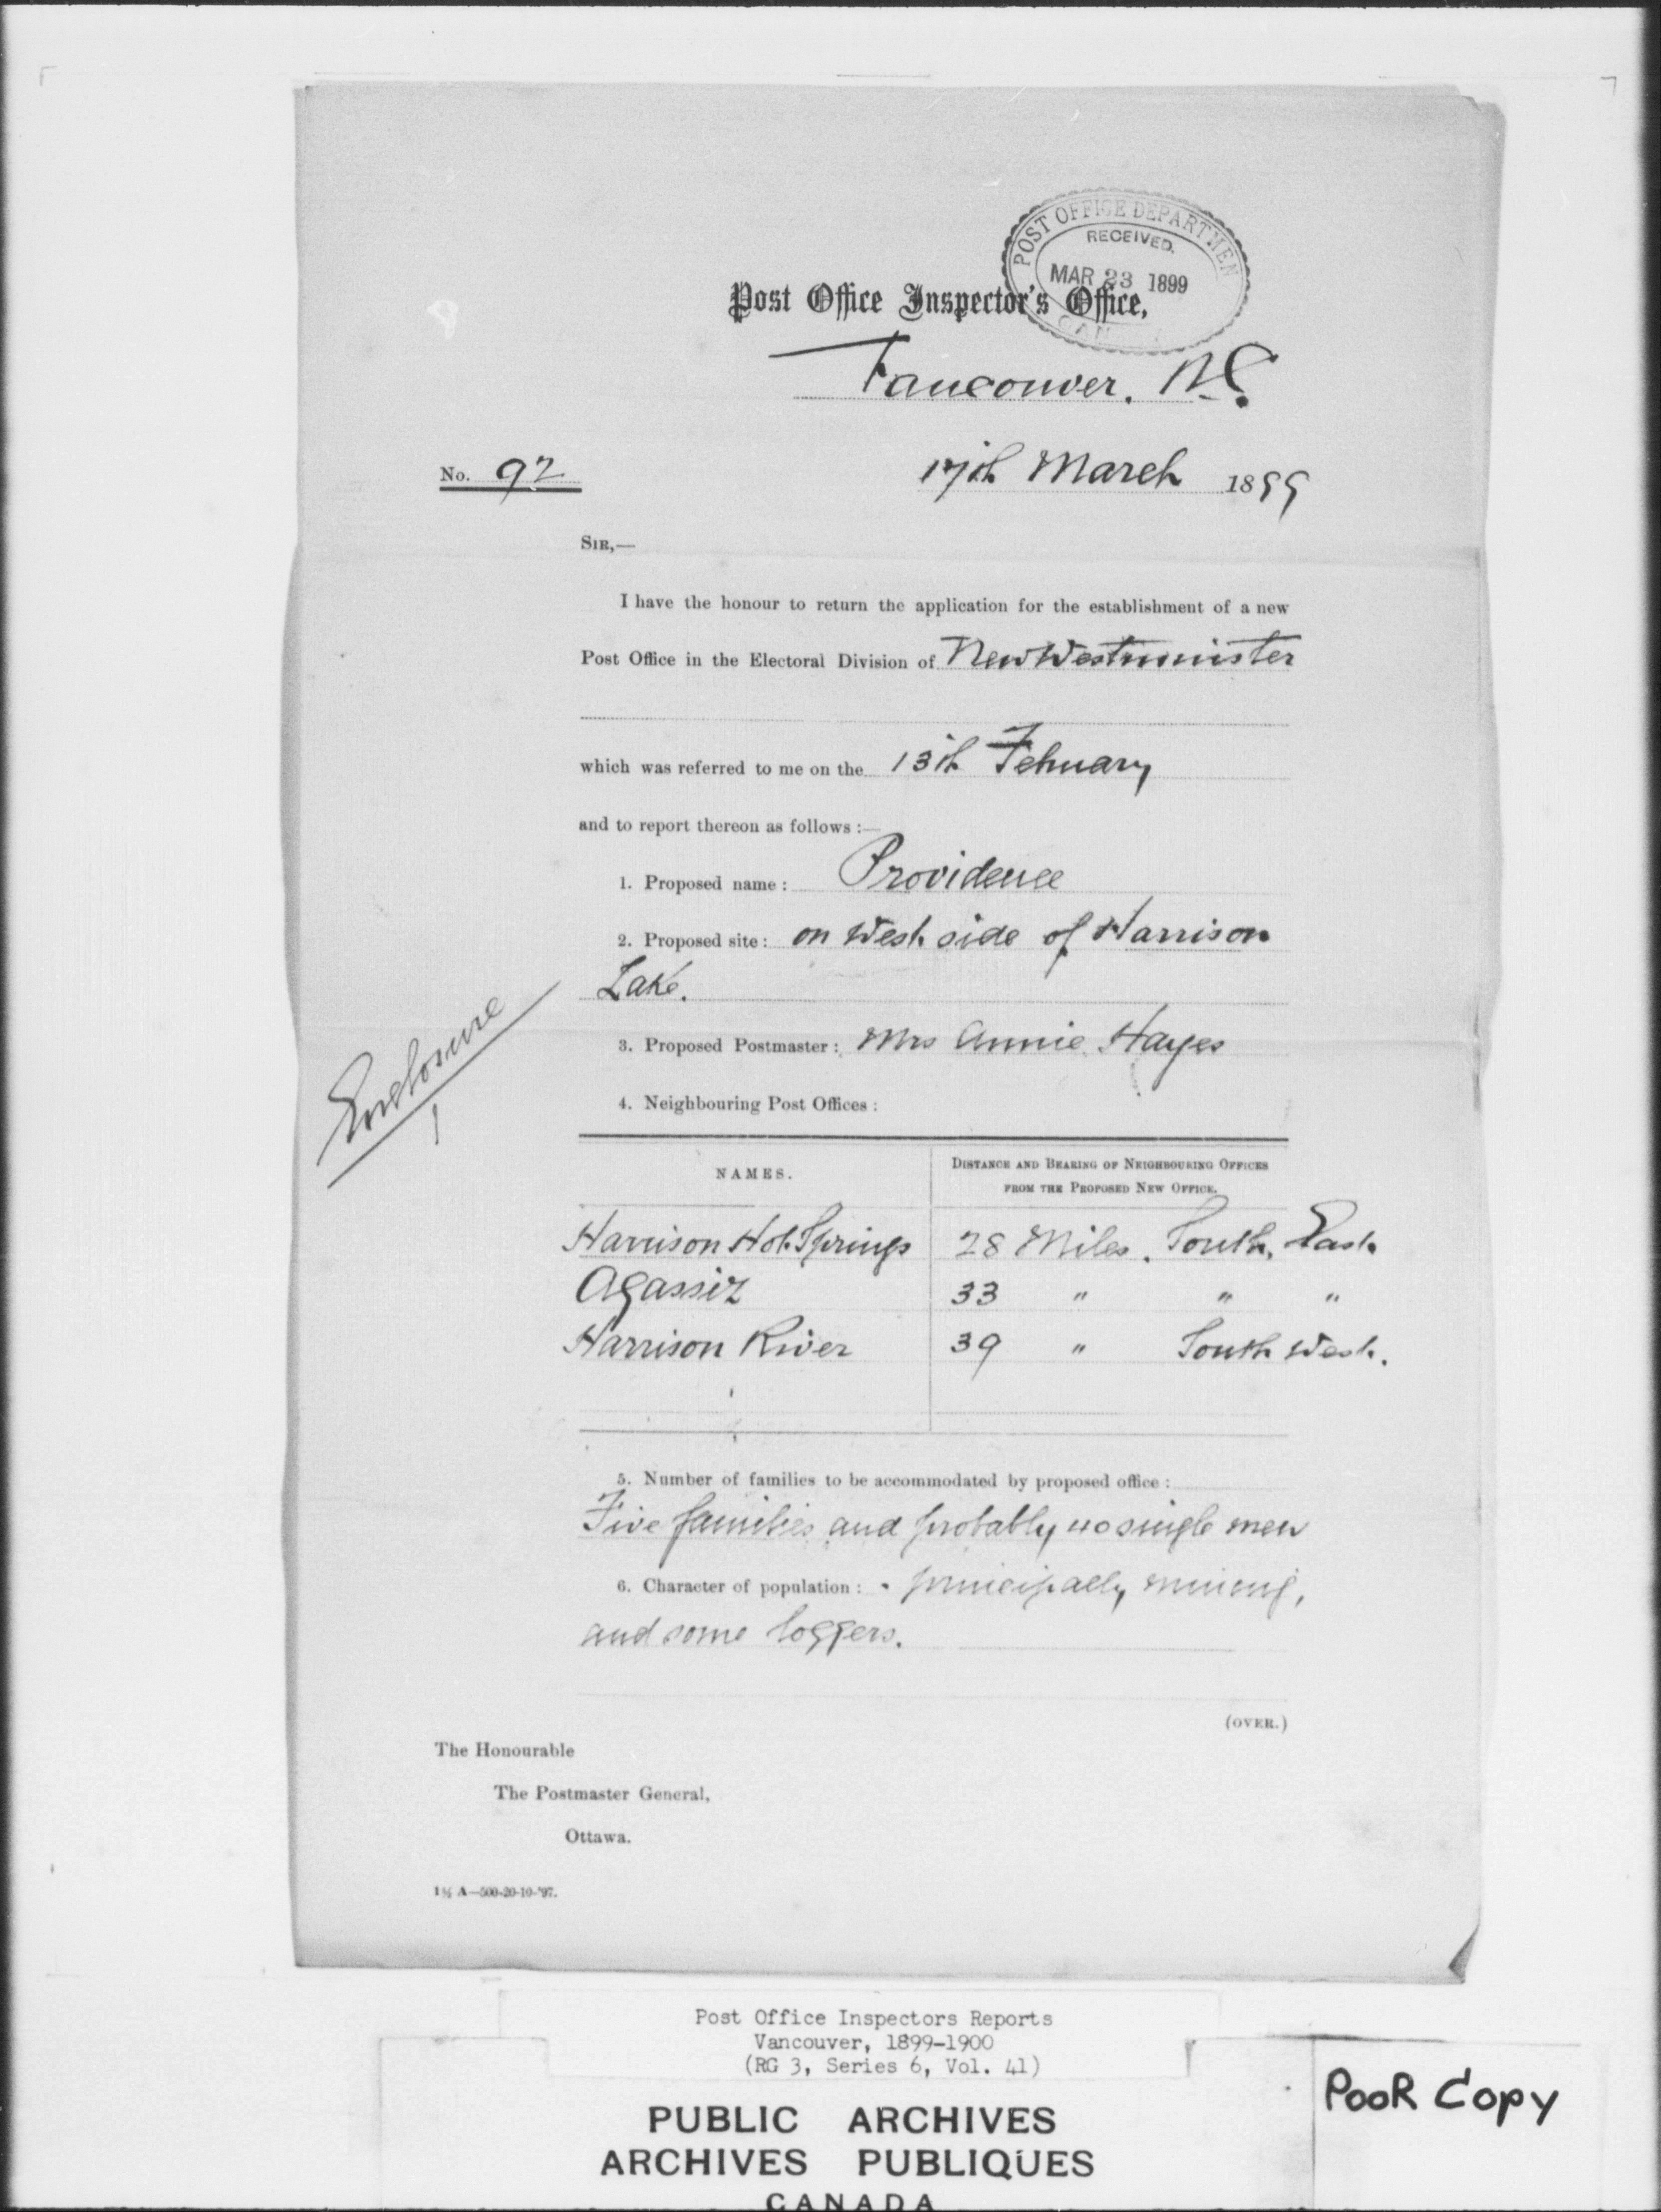 POST OFFICE DEPARTMEN
RECEIVED.
MAR 23 1899
CAN
Post Office Inspector's Office,
Vancouver. B.C.
No. 92
17th March 1899
SIR,—
I have the honour to return the application for the establishment of a new
Post Office in the Electoral Division of New Westminister
which was referred to me on the 13th February
and to report thereon as follows :—
1. Proposed name : Providence
2. Proposed site : on West side of Harrison
Lake.
Enclosure
1
3. Proposed Postmaster : Mrs Annie Hayes
4. Neighbouring Post Offices :
NAMES.
DISTANCE AND BEARING OF NEIGHBOURING OFFICES
FROM THE PROPOSED NEW OFFICE.
Harrison Hot Springs 28 Miles. South, East
Agassiz 33 " " "
Harrison River 39 " South West.
5. Number of families to be accommodated by proposed office :
Five families and probably 40 single men
6. Character of population : - principally mining,
and some loggers.
(OVER.)
The Honourable
The Postmaster General,
Ottawa.
1½ A—500-20-10-'97.
Post Office Inspectors Reports
Vancouver, 1899-1900
(RG 3, Series 6, Vol. 41)
POOR COPY
PUBLIC ARCHIVES
ARCHIVES PUBLIQUES
CANADA